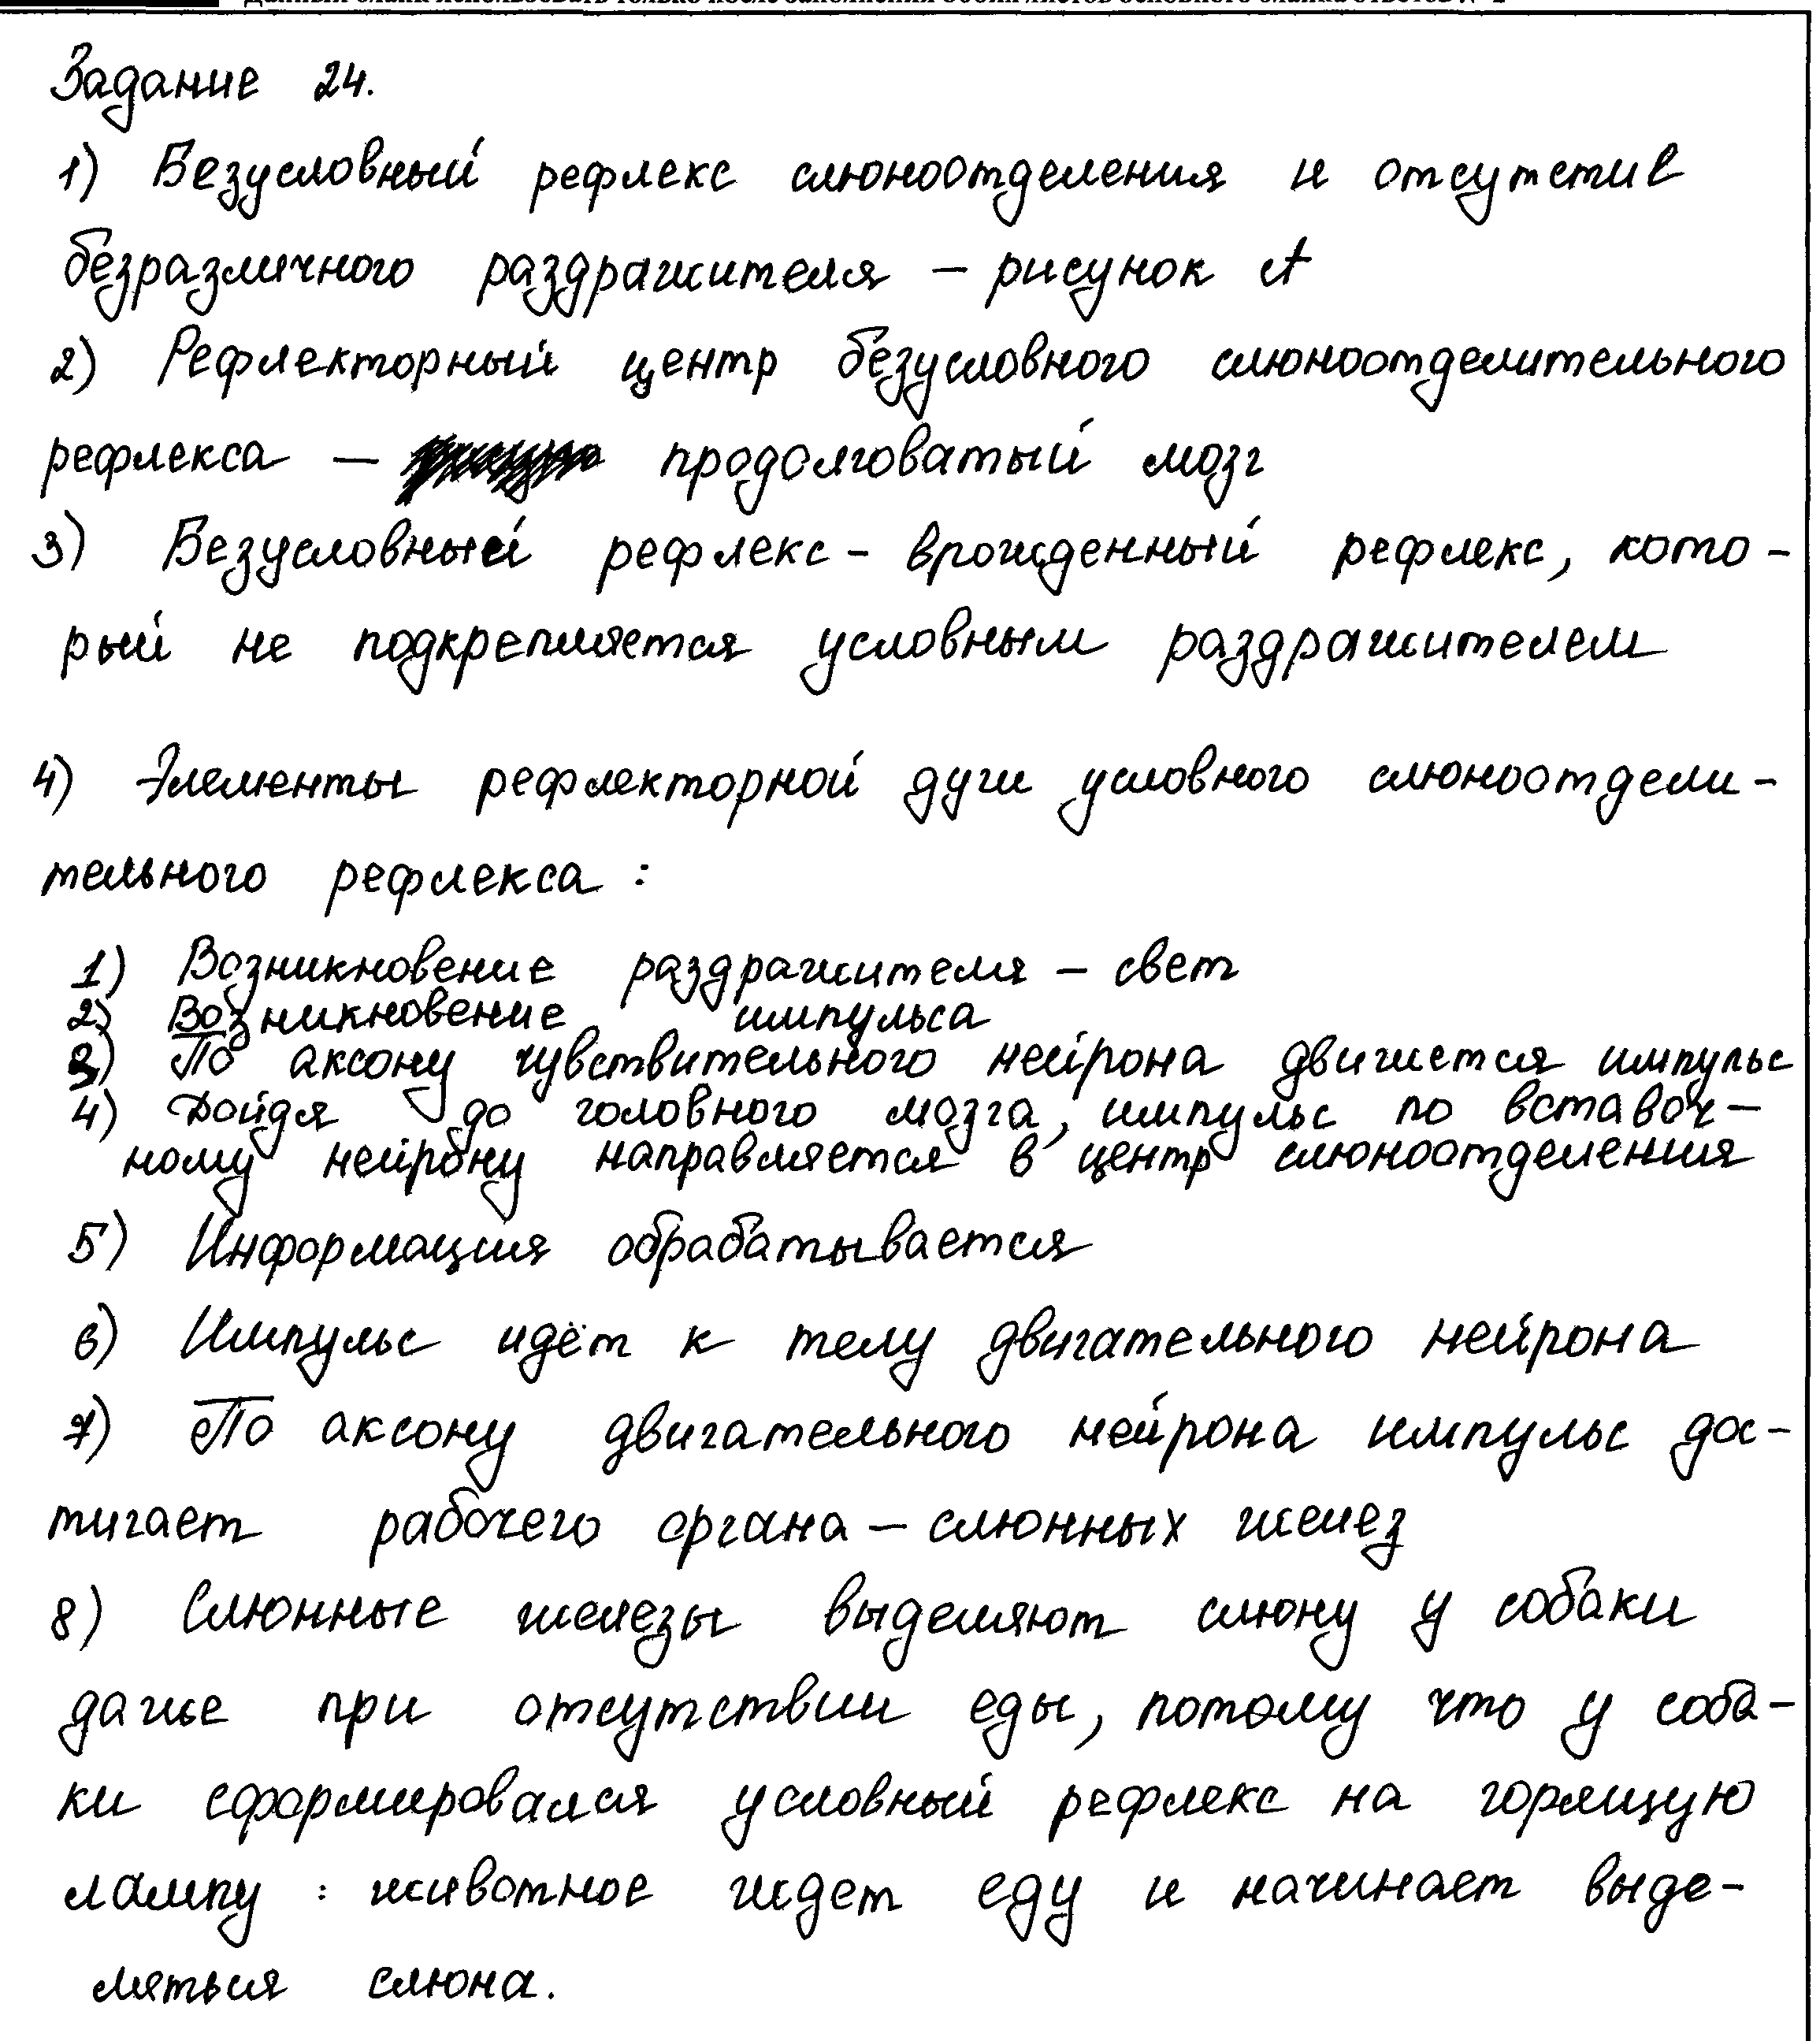 Задание 24.
1) Безусловный рефлекс слюноотделения и отсутстив
безразличного раздражителя – рисунок А
2) Рефлекторный центр безусловного слюноотделительного
рефлекса – продолговатый мозг
3) Безусловный рефлекс - врожденный рефлекс, кото-
рый не подкрепляется условным раздражителем
4) Элементы рефлекторной дуги условного слюноотдели-
тельного рефлекса :
1) Возникновение раздражителя – свет
2) Возникновение импульса
3) По аксону чувствительного нейрона движется импульс
4) Дойдя до головного мозга, импульс по вставоч-
ному нейрону направляется в центр слюноотделения
5) Информация обрабатывается
6) Импульс идёт к телу двигательного нейрона
7) По аксону двигательного нейрона импульс дос-
тигает рабочего органа – слюнных желез
8) Слюнные железы выделяют слюну у собаки
даже при отсутствии еды, потому что у соба-
ки сформировался условный рефлекс на горящую
лампу : животное ждет еду и начинает выде-
ляться слюна.